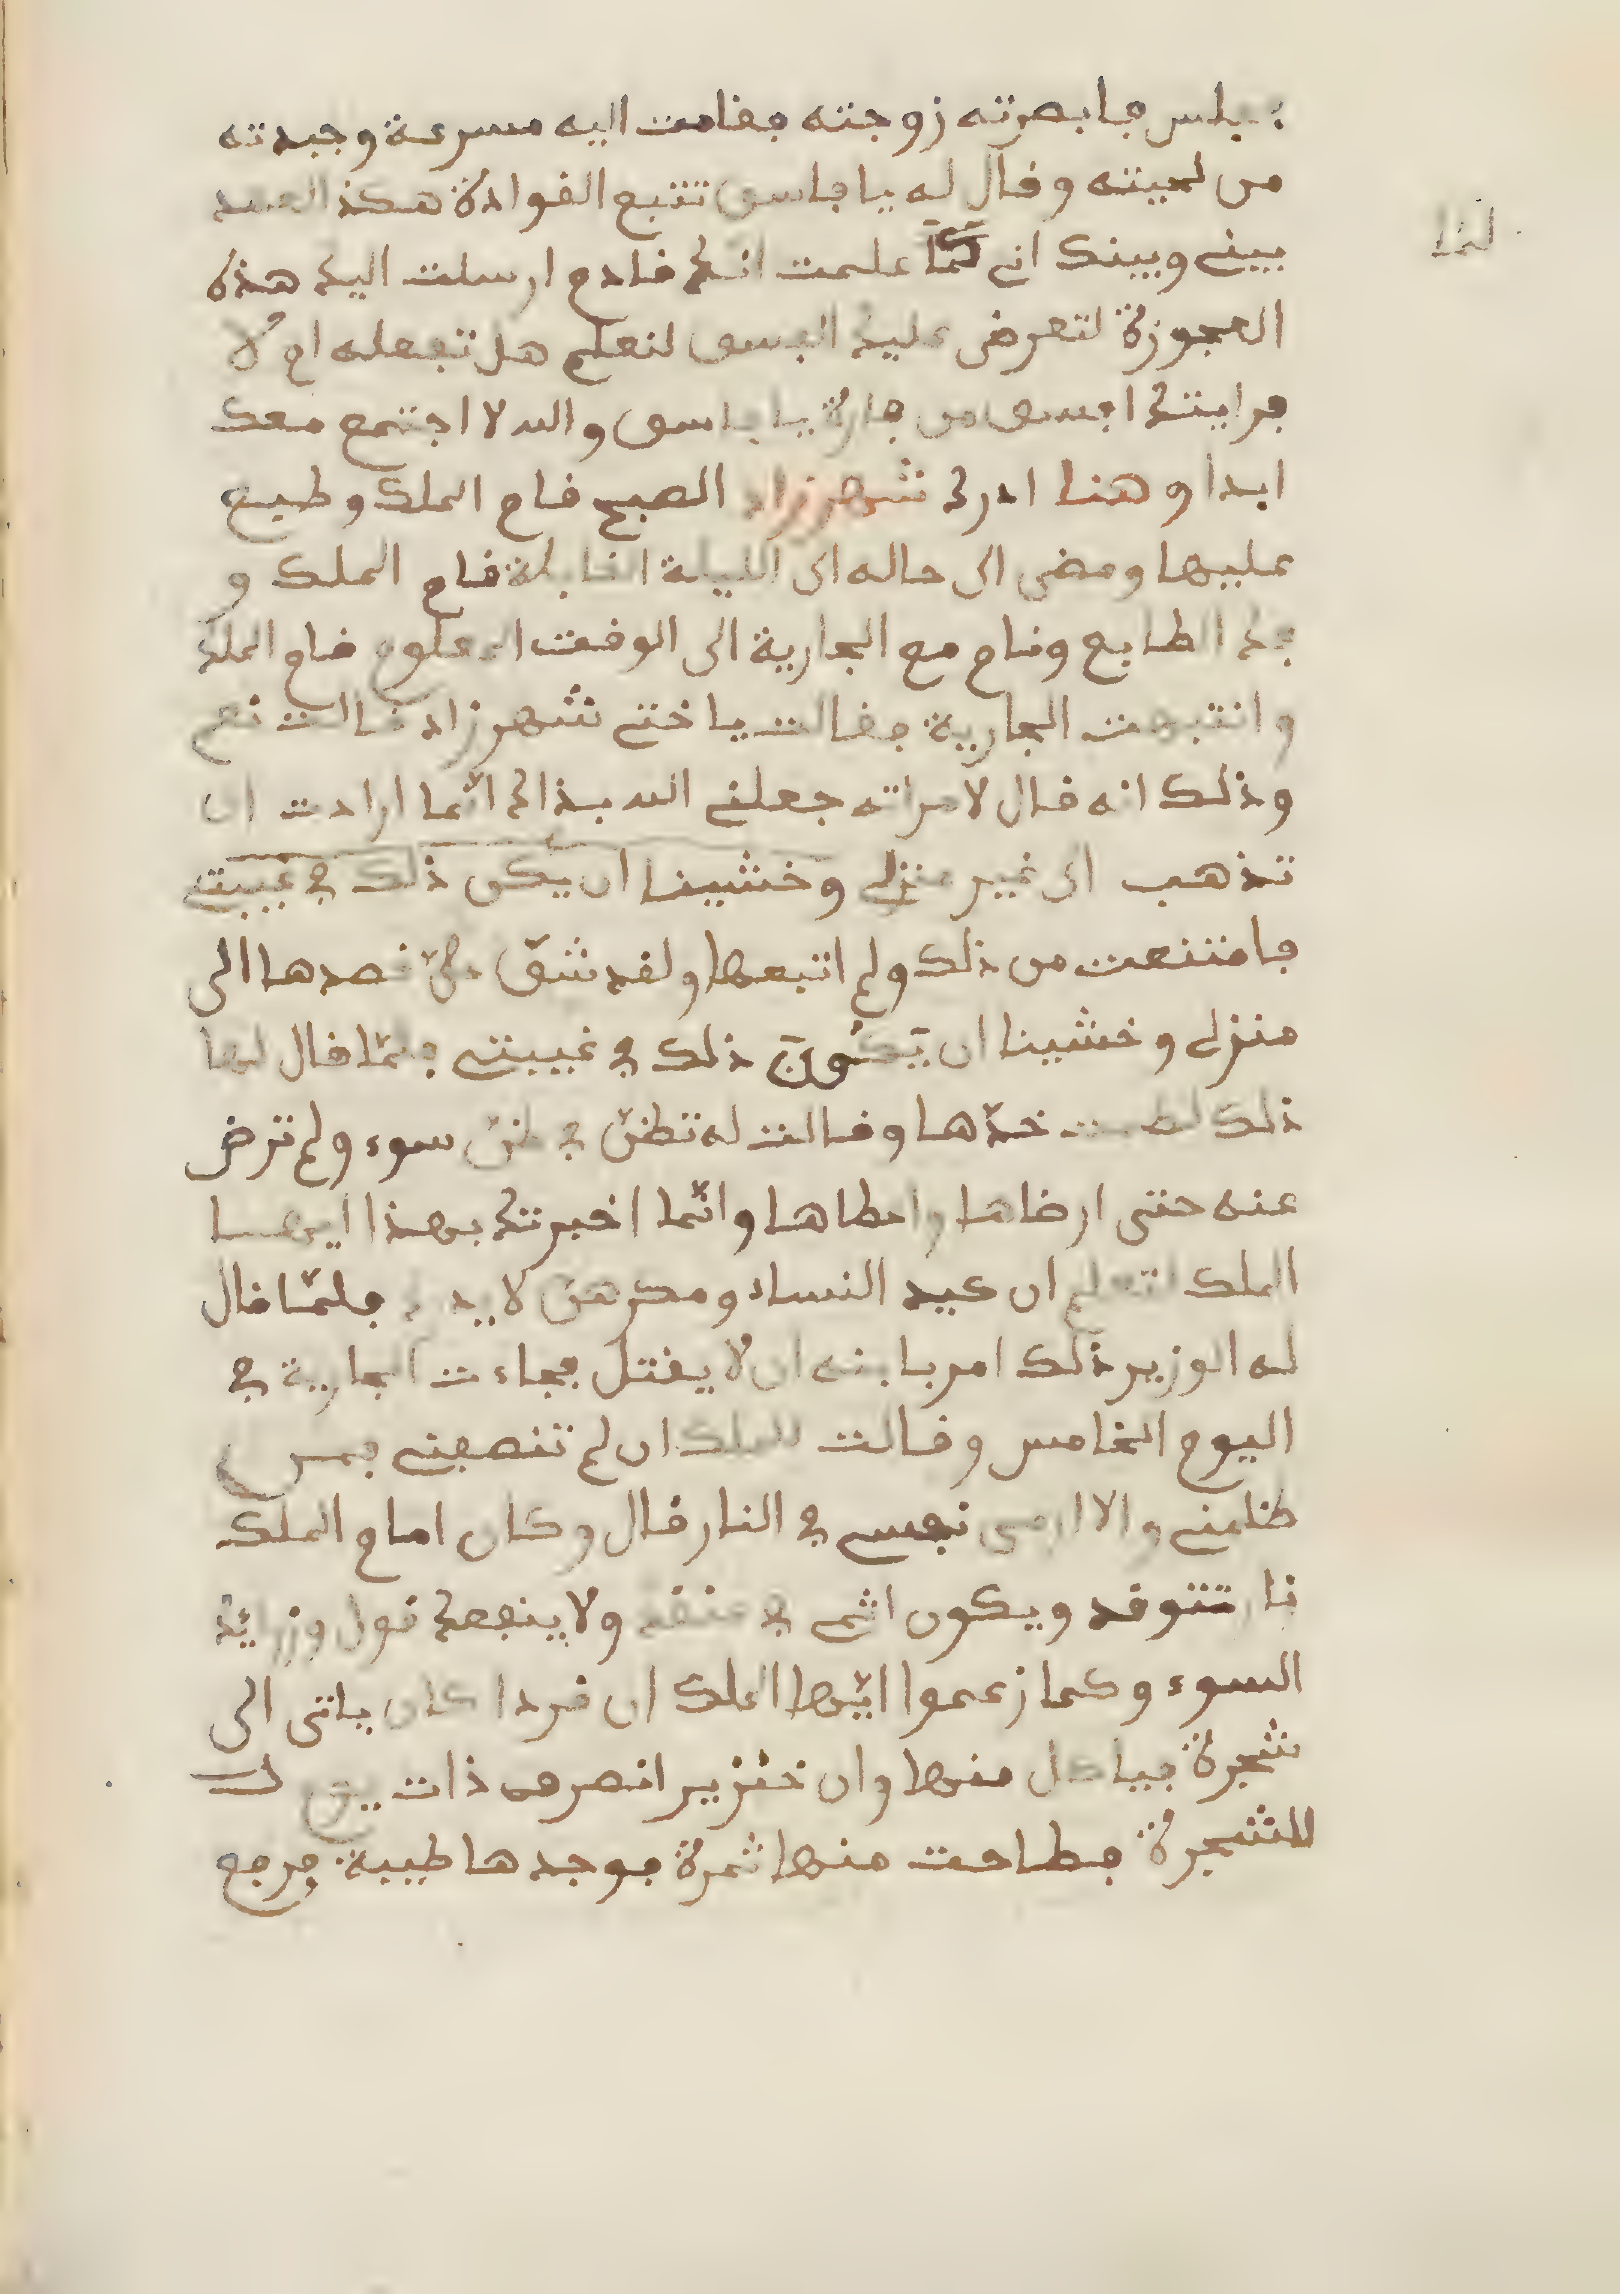 فجلس فابصرته زوجته فقامت اليه مسرعة وجبدته
من لحيته وقال له يا فاسق تتبع القوادة هكذ العهد
بيني وبينك اني لمّا علمت انك قادم ارسلت اليك هذه
لمّا
العجوزة لتعرض عليك الفسق لنعلم هل تفعله ام لا
فرايتك افسق من فارة يا فاسق والله لا اجتمع معك
ابدا وهنا ادرك شهرزاد الصبح فقام الملك وطبع
عليها ومضى الى حاله الى الليلة القابلة فقام الملك و
فك الطابع ونام مع الجارية الى الوقت المعلوم فقام الملك
وانتبهت الجارية فقالت ياختي شهرزاد قالت نعم
وذلك انه قال لامراته جعلني الله بذاك انّما ارادت ان
تذهب الى غير منزلي وخشينا ان يكن ذلك في غيبتي
فامتنعت من ذلك ولم اتبعها ولقد شقّ عليّ قصدها الى
منزلي وخشينا ان يَكُونَ ذلك في غيبتي فلمّا قال لها
ذلك لطمت خدّها وقالت له تظنّ في ظنّ سوء ولم ترض
عنه حتى ارضاها واعطاها وانّما اخبرتك بهذا ايها
الملك لتعلم ان كيد النساء ومكرهنّ لا يدرك فلمّا قال
له الوزير ذلك امر بابنه ان لا يقتل فجاءت الجارية في
اليوم الخامس وقالت للملك ان لم تنصفني ممن
ظلمني والا ارمي نفسي في النار قال وكان امام الملك
نار تتوقد ويكون اثمي في عنقك ولا ينفعك قول وزرائك
السوء وكما زعموا ايّها الملك ان قردا كان ياتي الى
شجرة فياكل منها وان خنزير انصرف ذات يوم لـ
للشجرة فطاحت منها ثمرة فوجدها طيبة فرجع